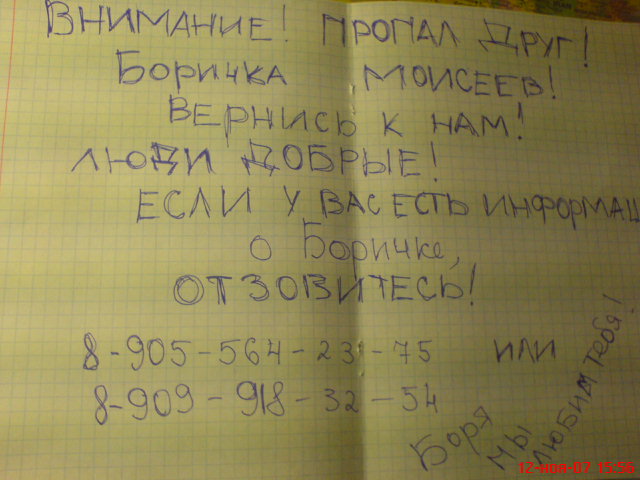 ВНИМАНИЕ! ПРОПАЛ ДРУГ!
Боричка МОИСЕЕВ!
ВЕРНИСЬ К НАМ!
ЛЮДИ ДОБРЫЕ!
ЕСЛИ У ВАС ЕСТЬ ИНФОРМАЦ
о Боричке,
ОТЗОВИТЕСЬ!
8-905-564-23-75 ИЛИ
8-909-918-32-54
Боря
МЫ
ЛЮБИМ ТЕБЯ!
12-ноя-07 15:56